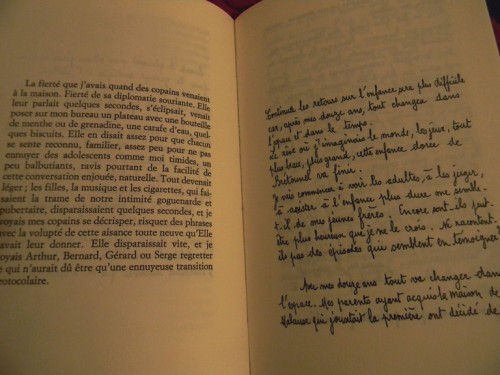 La fierté que j'avais quand des copains venaient
à la maison. Fierté de sa diplomatie souriante. Elle
leur parlait quelques secondes, s'éclipsait, venait
poser sur mon bureau un plateau avec une bouteille
de menthe ou de grenadine, une carafe d'eau, quel-
ques biscuits. Elle en disait assez pour que chacun
se sente reconnu, familier, assez peu pour ne pas
ennuyer des adolescents comme moi timides, un
peu balbutiants, ravis pourtant de la facilité de
cette conversation enjouée, naturelle. Tout devenait
léger ; les filles, la musique et les cigarettes, qui fai-
saient la trame de notre intimité goguenarde et
pubertaire, disparaissaient quelques secondes, et je
voyais mes copains se décrisper, risquer des phrases
avec la volupté de cette aisance toute neuve qu'Elle
avait leur donner. Elle disparaissait vite, et je
oyais Arthur, Bernard, Gérard ou Serge regretter
e qui n'aurait dû être qu'une ennuyeuse transition
rotocolaire.
Continua les retours sur l'enfance sera plus difficile
car, après mes douze ans, tout changea dans
l'espace et dans le temps.
Le sens où j'imaginais le monde, les jeux, tout
plus beau, plus grand, cette enfance dorée de
va finir.
J'y vais commencer à voir les adultes, à les juger,
à assister à l'enfance plus dure me semble-
t-il de mes jeunes frères. Encore sont-ils peut-
être plus heureux que je ne le crois. N racontent-
ils pas des épisodes qui semblent en témoigner?
Avec mes douze ans tout va changer dans
l'espace. Mes parents ayant acquis la maison de
qui jouxtait la première ont décidé de